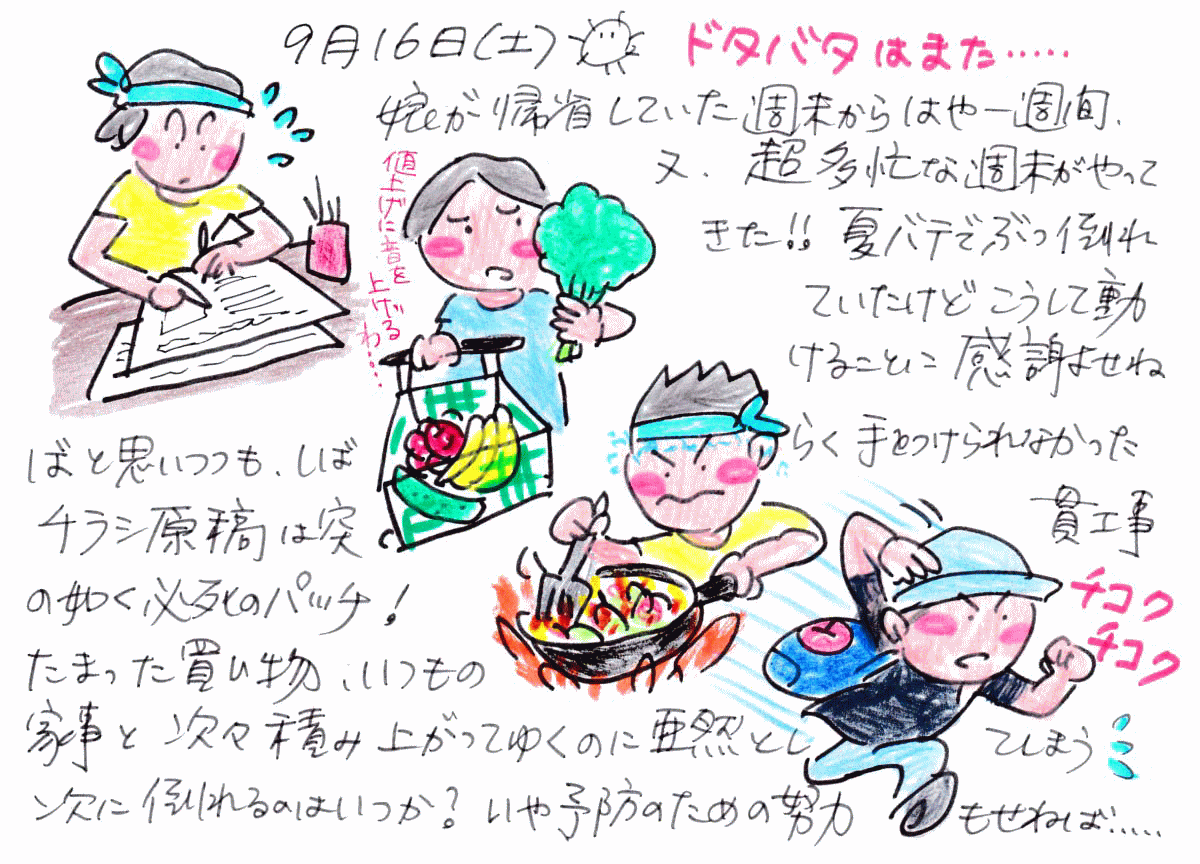 9月16日(土) ドタバタはまた……
娘が帰省していた週末からはや一週間、
又、超多忙な週末がやって
きた!! 夏バテでぶっ倒れ
ていたけど こうして動
けることに感謝せね
ばと思いつつも、しばらく手をつけられなかった
チラシ原稿は突貫工事
の如く必死のパッチ!
たまった買い物、いつもの
家事と次々積み上がってゆくのに亜然としてしまう
次に倒れるのはいつか? いや予防のための努力もせねば……
値上げに音を
上げる
わ……
チコク
チコク